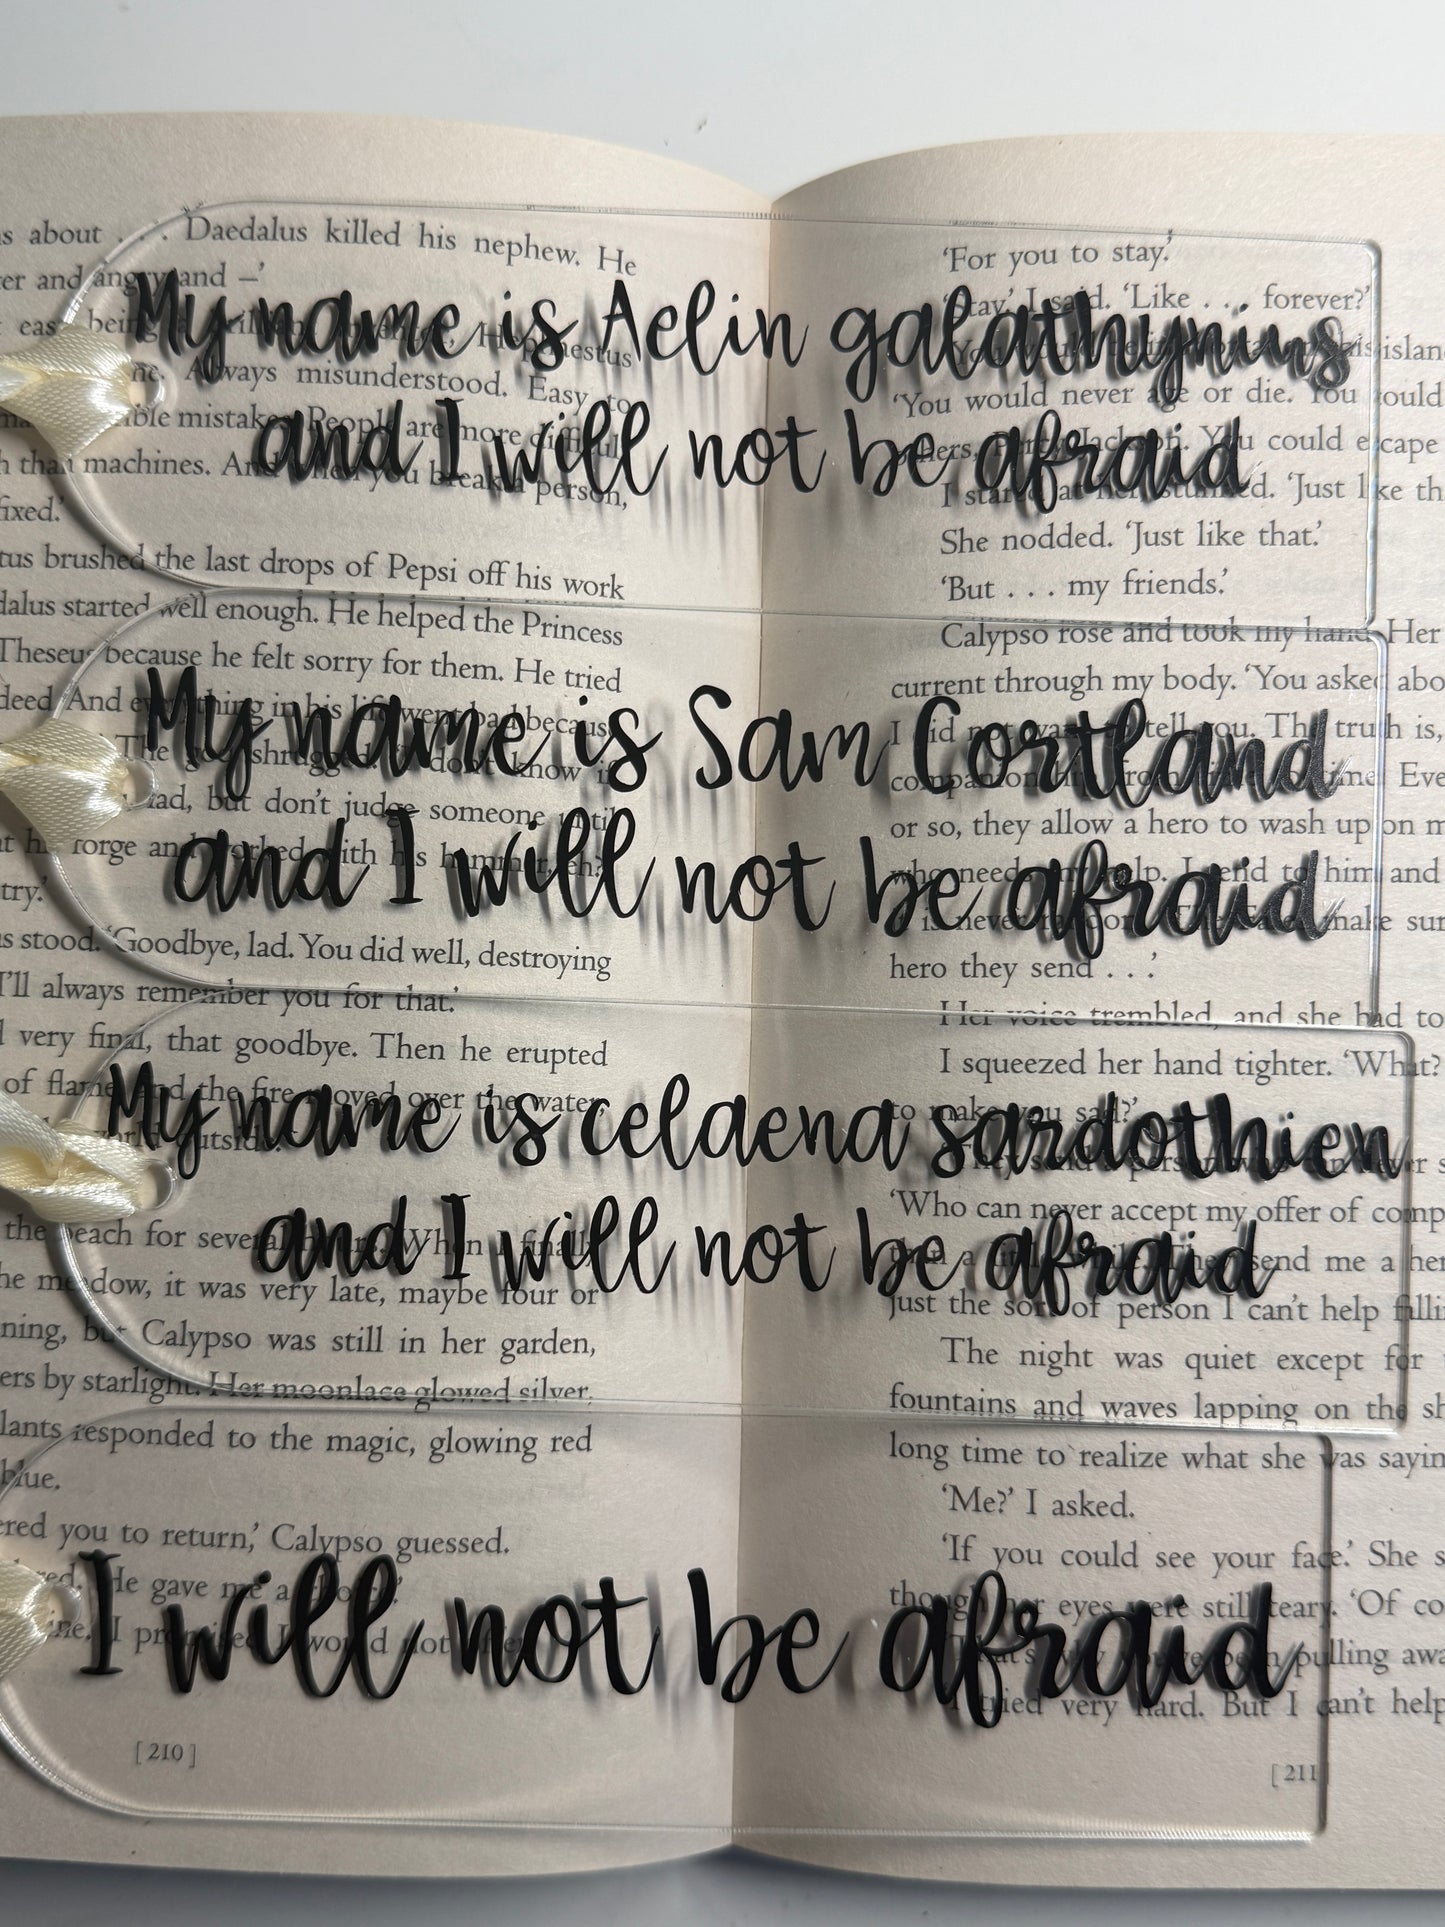 My name is Aelin galathynius
and I will not be afraid
My name is Sam Cortland
and I will not be afraid
My name is celaena sardothien
and I will not be afraid
I will not be afraid
s about . . . Daedalus killed his nephew. He
er and angry and –’
Always misunderstood. Easy to
mistakes. People are more
than machines. And when you break a person,
fixed.’
tus brushed the last drops of Pepsi off his work
dalus started well enough. He helped the Princess
Theseus because he felt sorry for them. He tried
deed. And everything in his life went bad because
The god shrugged. ‘I don’t know if
lad, but don’t judge someone until
forge and worked with his hammer, eh?
try.’
s stood. ‘Goodbye, lad. You did well, destroying
I’ll always remember you for that.’
very final, that goodbye. Then he erupted
of flame and the fire moved over the water,
world outside.
the beach for several hours. When I finally
he meadow, it was very late, maybe four or
ning, but Calypso was still in her garden,
ers by starlight. Her moonlace glowed silver,
lants responded to the magic, glowing red
blue.
ered you to return,’ Calypso guessed.
He gave me a choice.’
I promised I would not
[210]
‘For you to stay.’
‘Stay,’ I said. ‘Like . . . forever?’
islan
‘You would never age or die. You could
others, Percy Jackson. You could escape
I stared at her, stunned. ‘Just like th
She nodded. ‘Just like that.’
‘But . . . my friends.’
Calypso rose and took my hand. Her
current through my body. ‘You asked abo
I did not want to tell you. The truth is,
companionship from time to time. Eve
or so, they allow a hero to wash up on m
who needs my help. I tend to him and
is never random. The Fates make sur
hero they send . . .’
Her voice trembled, and she had to
I squeezed her hand tighter. ‘What?
to make you sad?’
‘They send a person who can never s
‘Who can never accept my offer of comp
than a little while. They send me a her
just the sort of person I can’t help fillin
The night was quiet except for
fountains and waves lapping on the sh
long time to realize what she was sayin
‘Me?’ I asked.
‘If you could see your face.’ She s
though her eyes were still teary. ‘Of co
‘That’s why you’ve been pulling awa
‘I tried very hard. But I can’t help
[211]